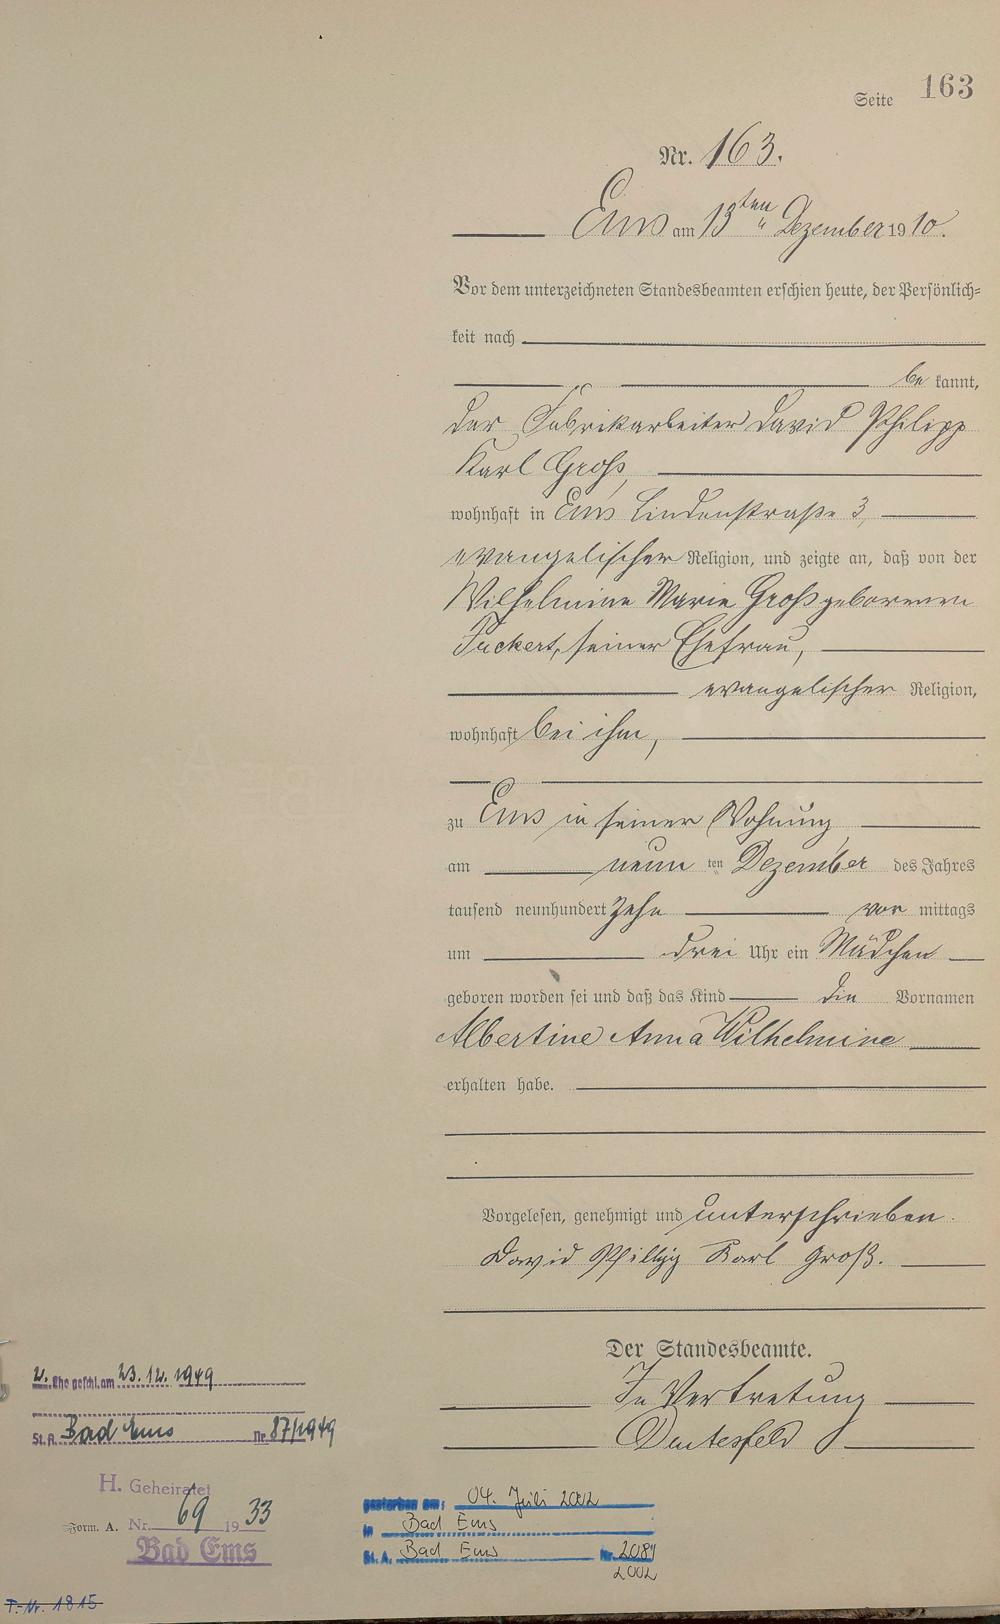 Seite 163
Nr. 163.
Ems am 13ten Dezember 1910.
Vor dem unterzeichneten Standesbeamten erschien heute, der Persönlich=
keit nach
be kannt,
der Fabrikarbeiter David Philipp
Karl Groß,
wohnhaft in Ems Lindenstraße 3,
evangelischer Religion, und zeigte an, daß von der
Wilhelmine Marie Groß geborenen
Tuckert, seiner Ehefrau,
evangelischer Religion,
wohnhaft bei ihm,
zu Ems in seiner Wohnung
am neun ten Dezember des Jahres
tausend neunhundert zehn vor mittags
um drei Uhr ein Mädchen
geboren worden sei und daß das Kind die Vornamen
Albertine Anna Wilhelmine
erhalten habe.
Vorgelesen, genehmigt und unterschrieben.
David Philipp Karl Groß.
Der Standesbeamte.
In Vertretung
2. Ehe geschl. am 23.12.1949
St. A. Bad Ems Nr. 87/1949
H. Geheiratet
Form. A. Nr. 69 1933
Bad Ems
gestorben am: 04. Juli 2002
in Bad Ems
St. A. Bad Ems Nr. 208/
2002
T.-Nr. 1815